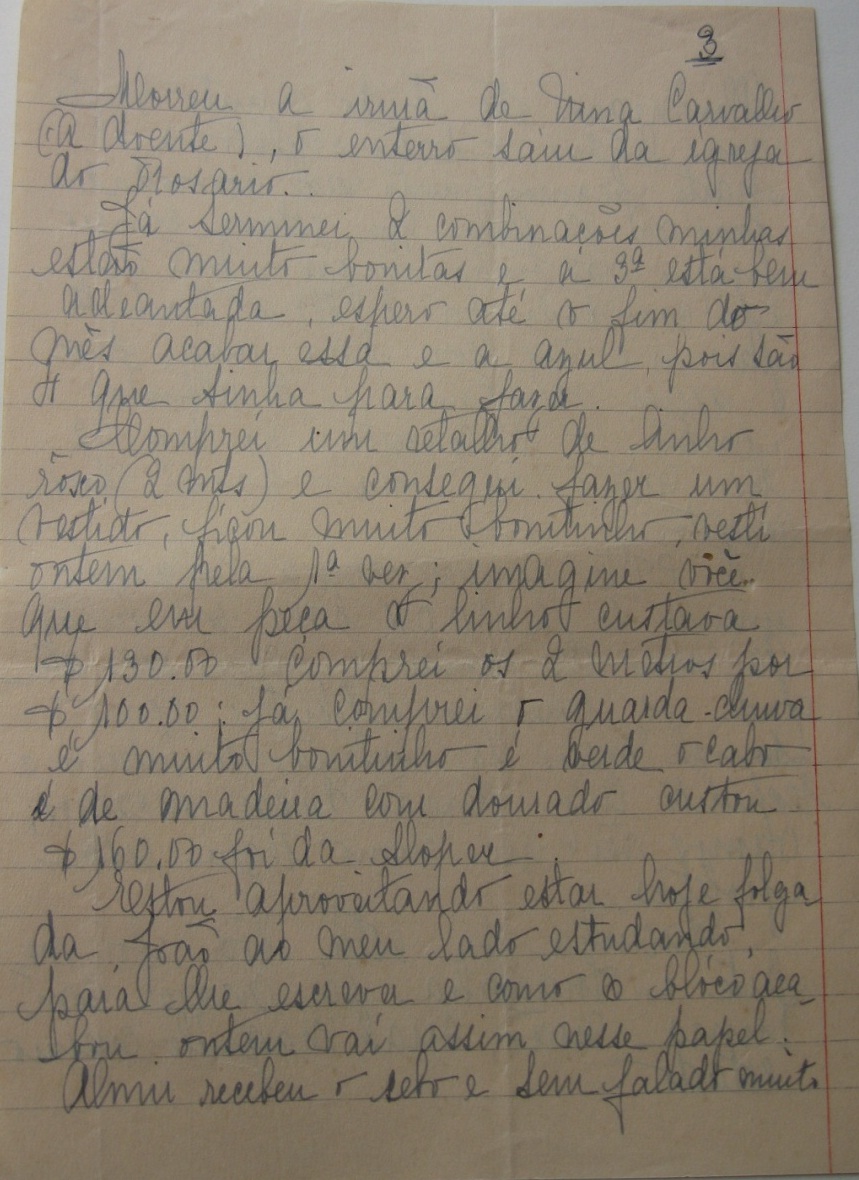 3
Morreu a irmã de Nina Carvalho
(a doente), o enterro saiu da igreja
do Rosario.
Já terminei 2 combinações minhas
estão muito bonitas e a 3ª está bem
adeantada, espero até o fim do
mês acabar essa e a azul, pois são
4 que tinha para fazer.
Comprei um retalho de linho
rôxo (2 mts) e consegui fazer um
vestido, ficou muito bonitinho, vesti
ontem pela 1ª vez; imagine você
que em peça o linho custava
$ 130.00 Comprei os 2 metros por
$ 100.00; já comprei o guarda-chuva
é muito bonitinho é verde o cabo
é de madeira com dourado custou
$ 160.00 foi da Sloper.
Estou aproveitando estar hoje folga
da, João ao meu lado estudando,
para lhe escrever e como o blóco aca
bou ontem vai assim nesse papel.
Almir recebeu o selo e tem falado muito